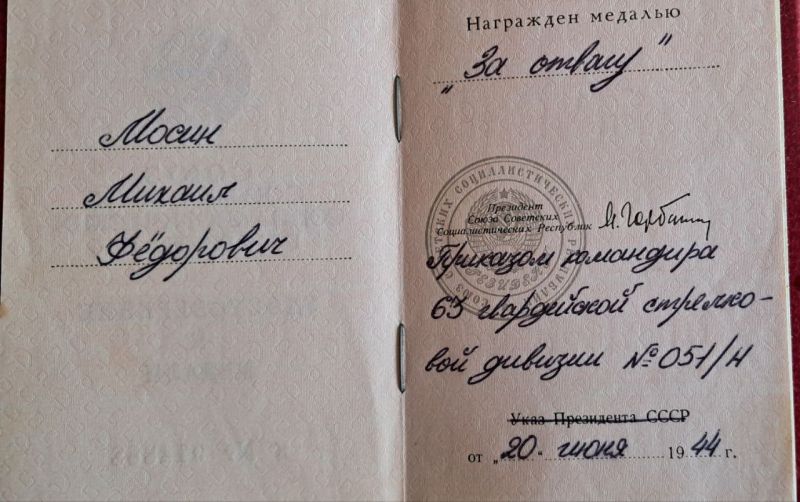 Мосин
Михаил
Фёдорович
Награжден медалью
„За отвагу"
Президент
Союза Советских
Социалистических Республик М. Горбачев
Приказом командира
63 гвардейской стрелко-
вой дивизии № 051/н
Указ Президента СССР
от „20" июня 1944 г.